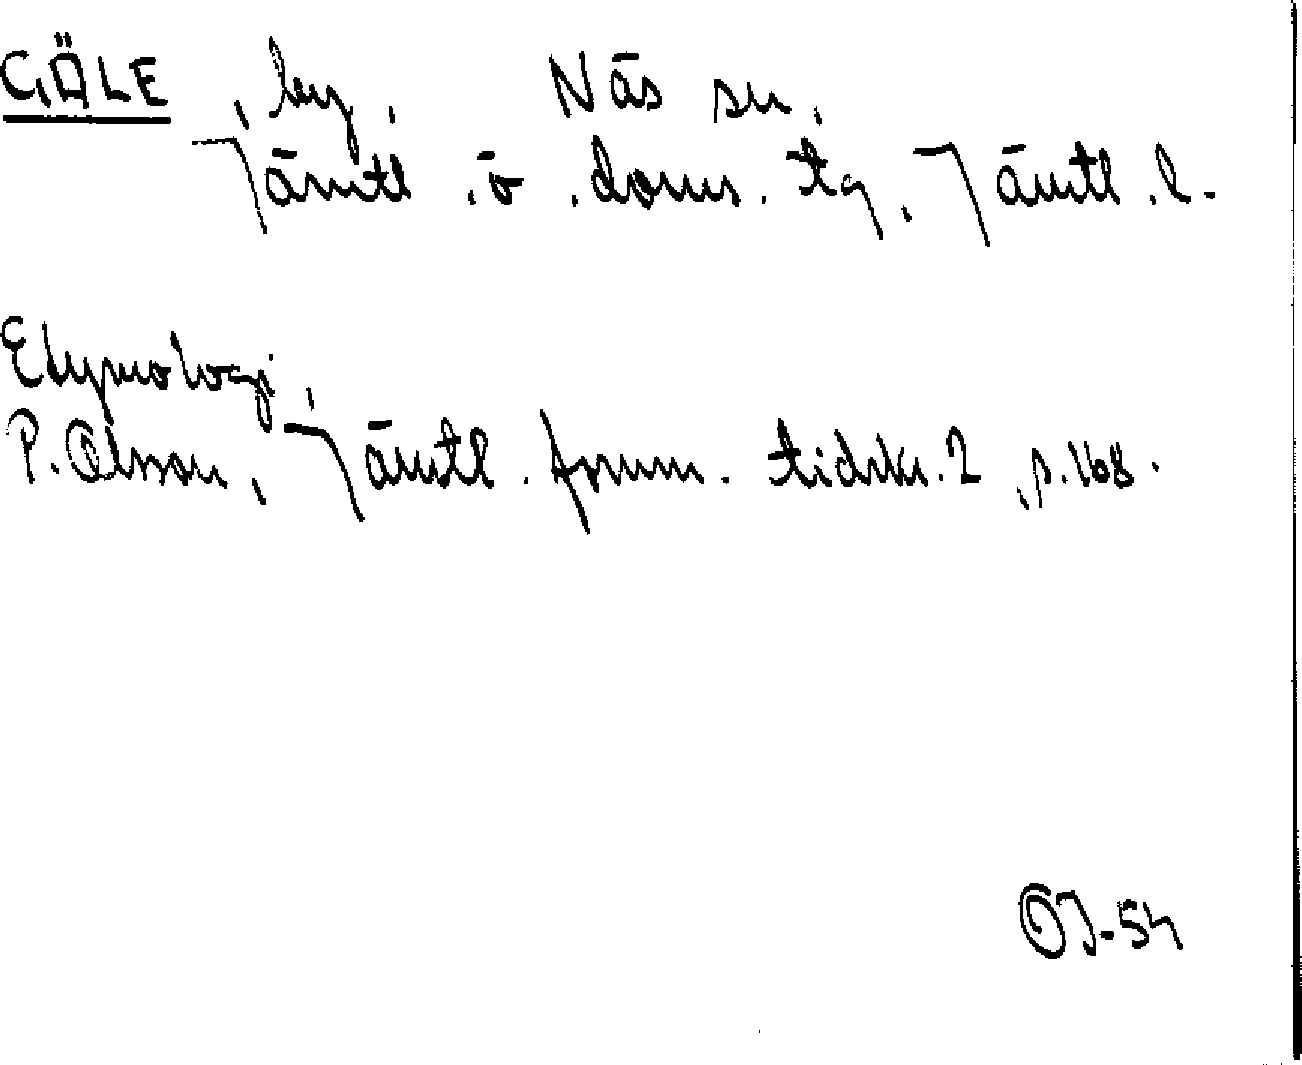 GÄLE, by, Näs sn,
Jämtl. ö. doms. tg, Jämtl. l.
Etymologi,
P. Olsson, Jämtl. fornm. tidskr. 2, s. 168.
OJ-54